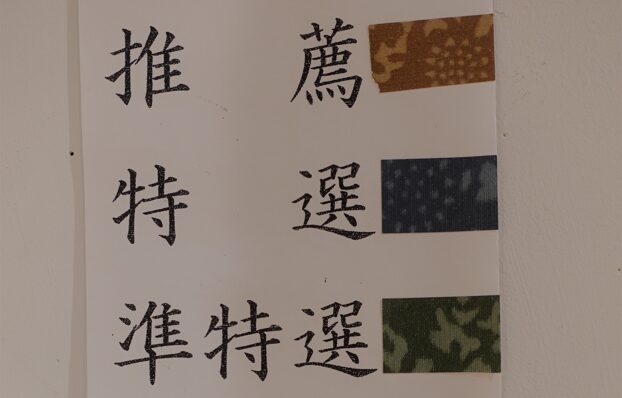 推薦
特選
準特選